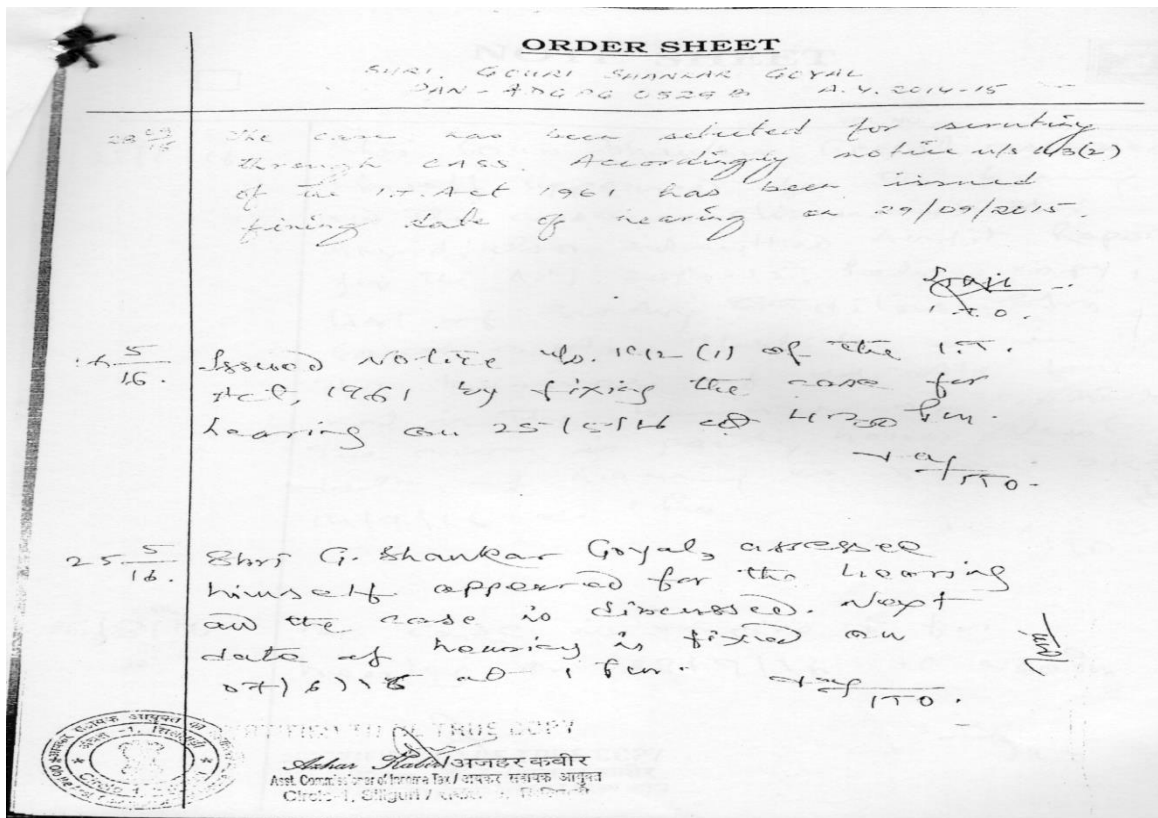 ORDER SHEET
SHRI. GOURI SHANKAR GOYAL
PAN - A.Y. 2014-15
The case has been selected for scrutiny
through CASS. Accordingly notice u/s 143(2)
of the I.T. Act 1961 has been issued
fixing date of hearing on 29/09/2015.
I.T.O.
5/16. Issued Notice u/s. 142(1) of the I.T.
Act, 1961 by fixing the case for
hearing on 25/5/16 at pm.
ITO.
25 5/16. Shri G. Shankar Goyal, assessee
himself appeared for the hearing
and the case is discussed. Next
date of hearing is fixed on
at 1 pm.
ITO.
CERTIFIED TO BE TRUE COPY
Azhar Kabir/अजहर कबीर
Asst. Commissioner of Income Tax / आयकर सहायक आयुक्त
Circle-1, Siliguri /